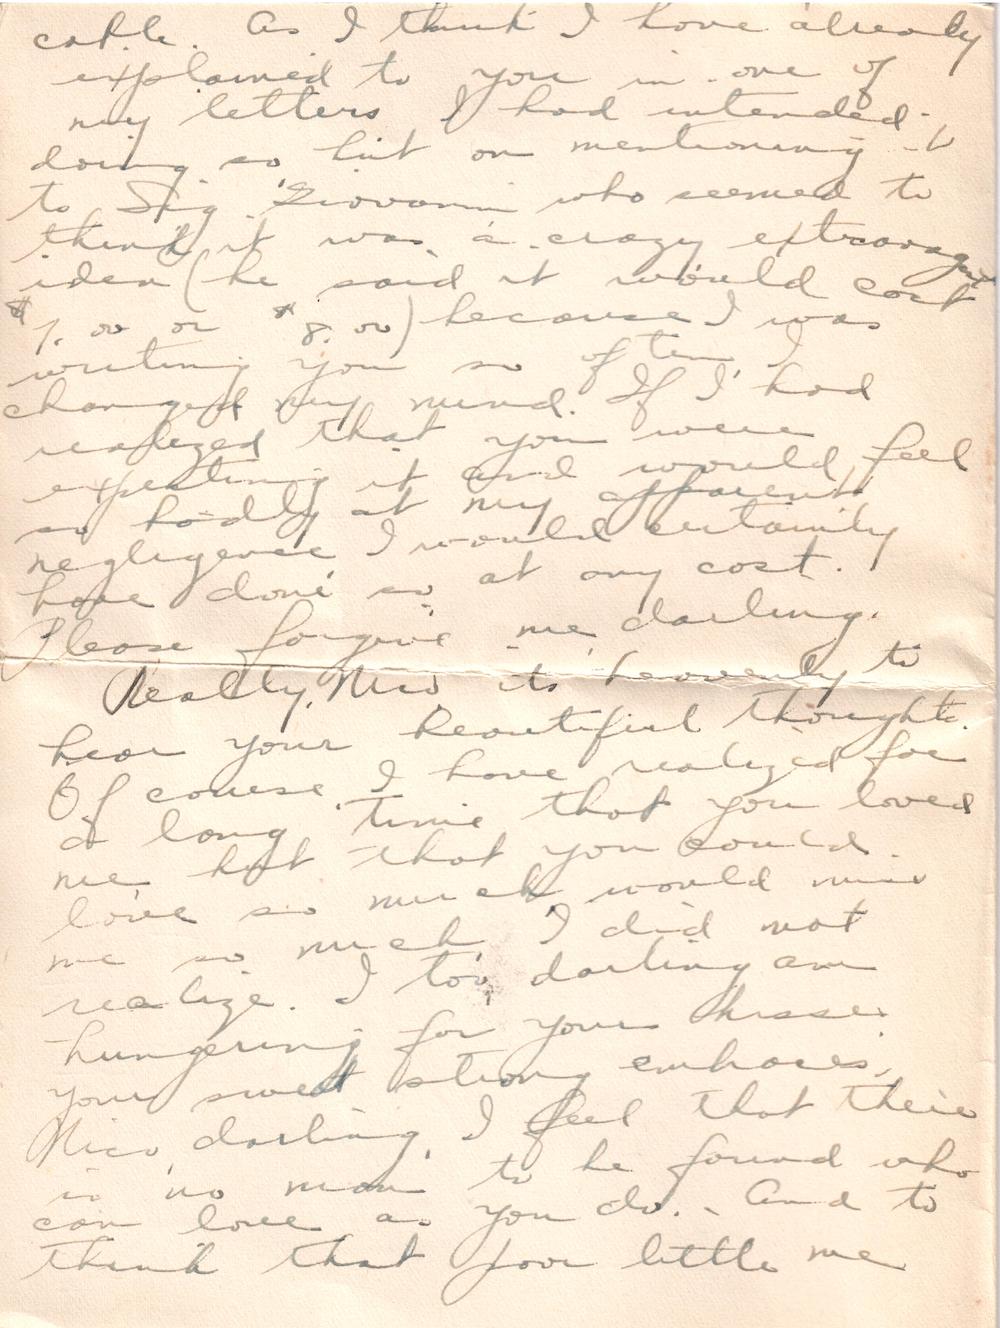 cable. As I think I have already
explained to you in one of
my letters I had intended
doing so but on mentioning it
to Sig. Giovanni who seemed to
think it was a crazy extravagant
idea (he said it would cost
$7.00 or $8.00) because I was
writing you so often I
changed my mind. If I had
realized that you were
expecting it and would feel
so badly at my apparent
negligence I would certainly
have done so at any cost.
Please forgive me darling.
Really, Nico its heavenly to
hear your beautiful thoughts.
Of course I have realized for
a long time that you loved
me but that you could
love so much would miss
me so much I did not
realize. I too darling am
hungering for your kisses
your sweet strong embraces,
Nico darling, I feel that there
is no man to be found who
can love as you do. And to
think that poor little me